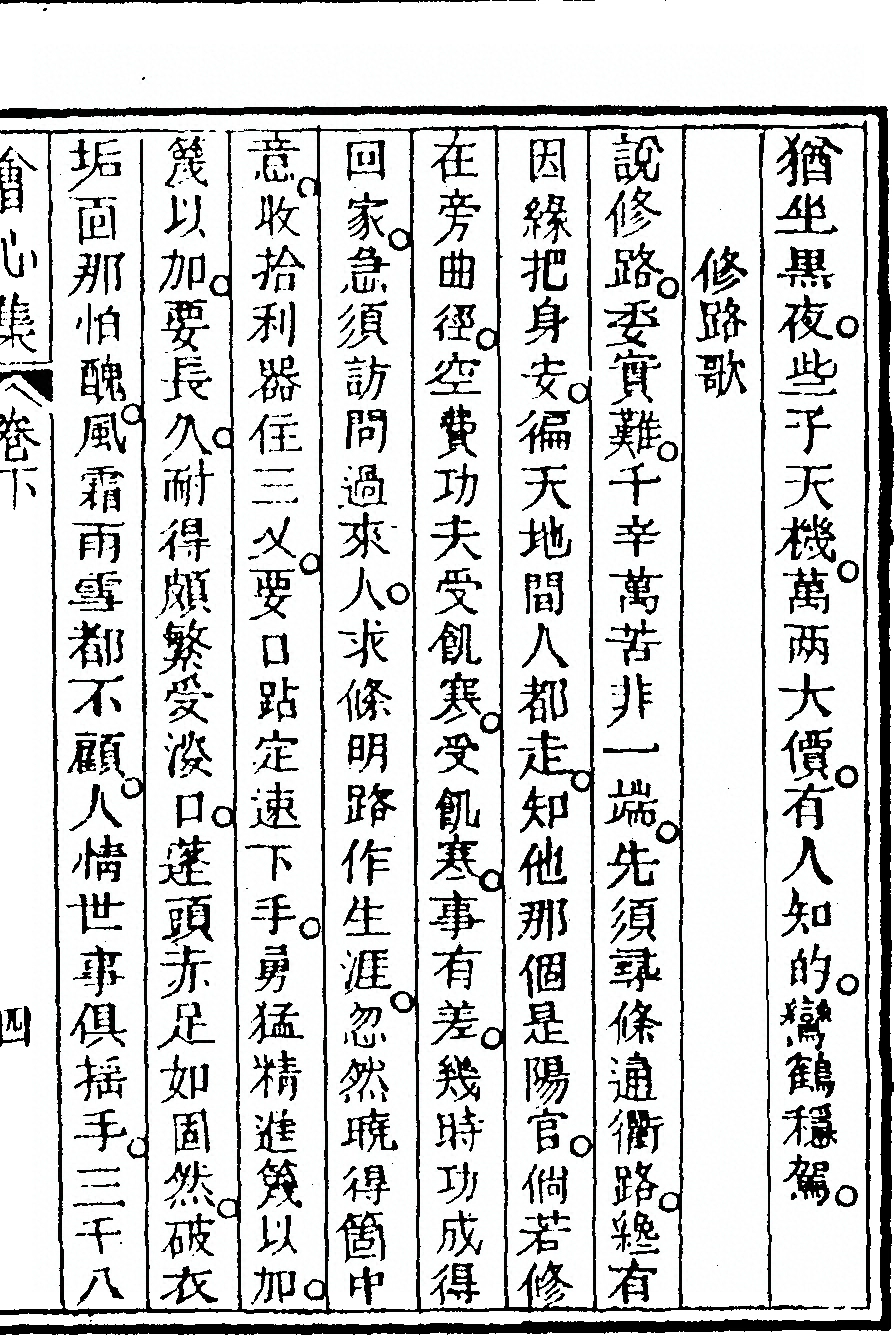 猶坐黑夜。些子天機。萬两大價。有人知的。鸞鶴穩駕。
修路歌
說修路。委實難。千辛萬苦非一端。先須尋條通衢路。纔有
因緣把身安。徧天地間人都走。知他那個是陽官。倘若修
在旁曲徑。空費功夫受飢寒。受飢寒。事有差。幾時功成得
回家。急須訪問過來人。求條明路作生涯。忽然曉得箇中
意。收拾利器住三义。要口跕定速下手。勇猛精進篾以加。
篾以加。要長久。耐得頗繁受淡口。蓬頭赤足如固然。破衣
垢面那怕醜。風霜雨雪都不顧。人情世事俱摇手。三千八
會心集
卷下
四